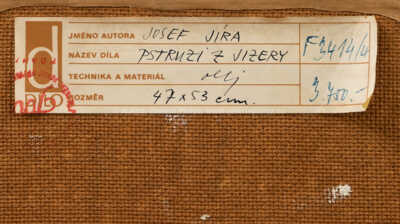 JMÉNO AUTORA JOSEF JÍRA
NÁZEV DÍLA PSTRUZI Z JIZERY F 3414/4
TECHNIKA A MATERIÁL olej
ROZMĚR 47 x 53 cm. 3.700.-
d